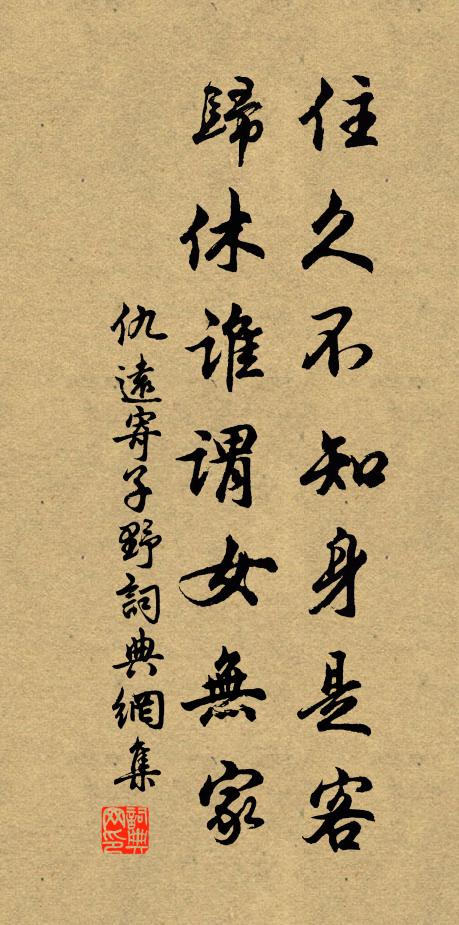 住久不知身是客
歸休誰謂女無家
仇遠寄子野詞典網集
詞典網印